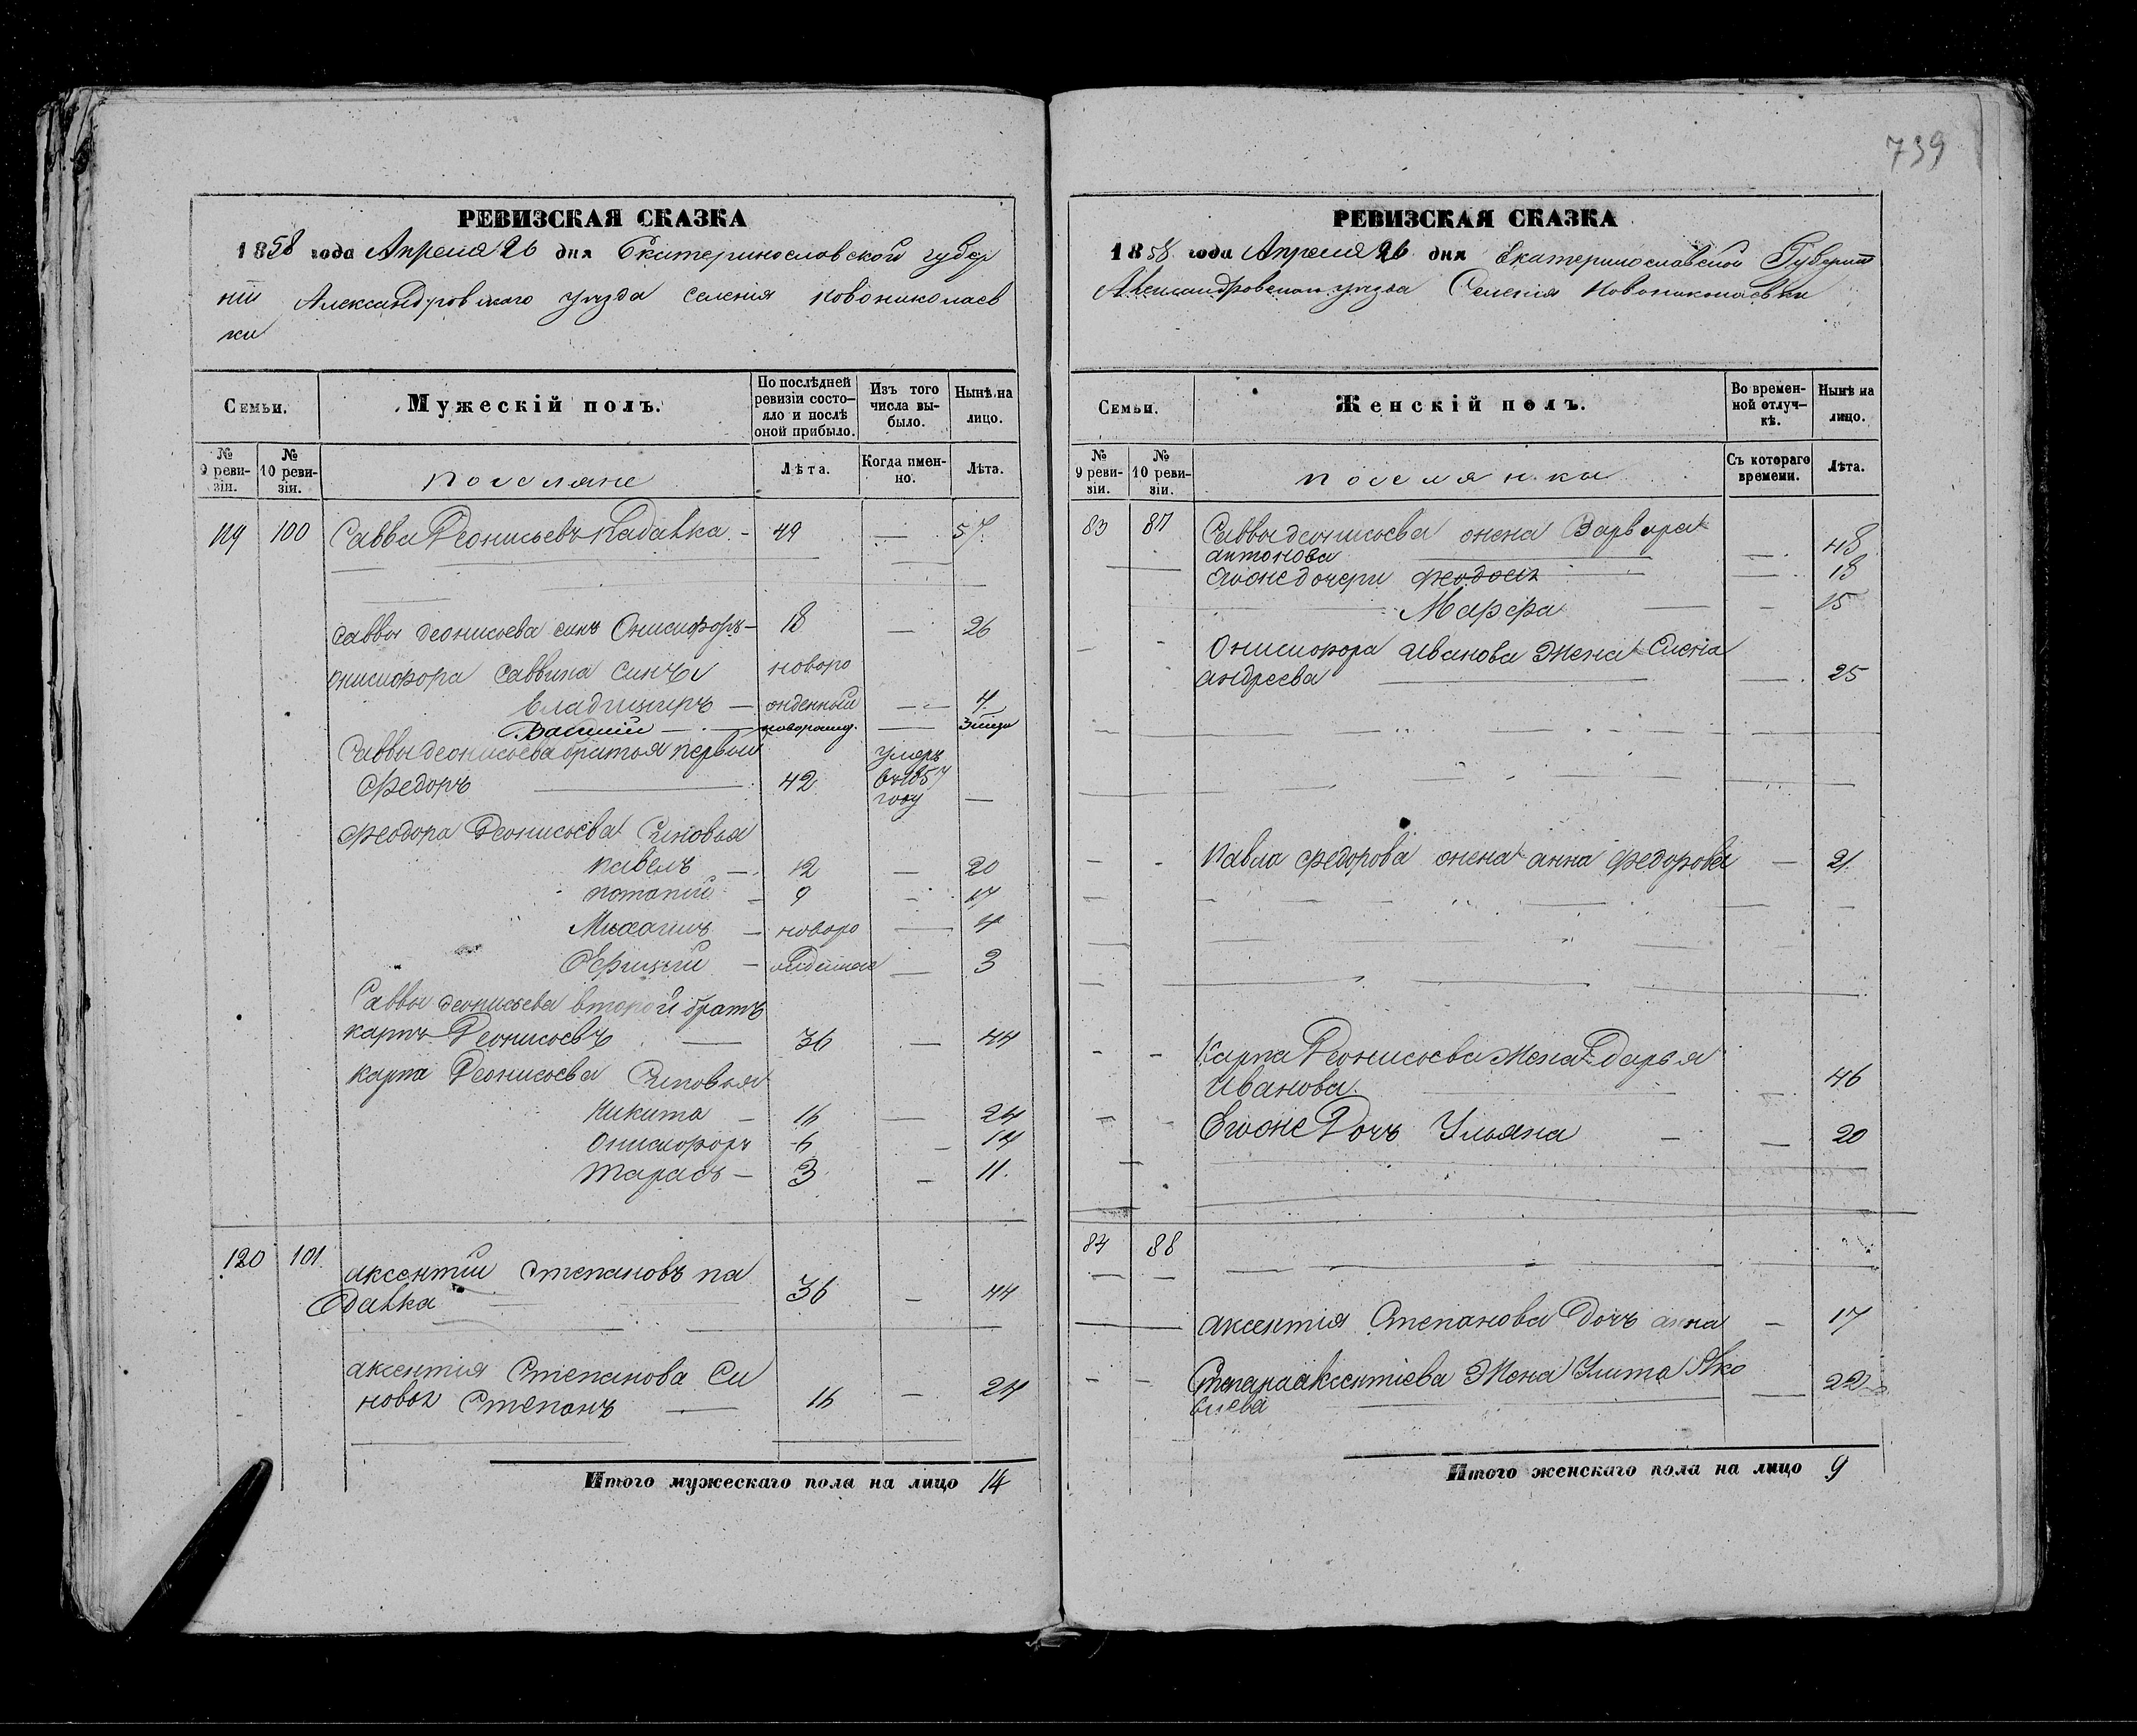 739
РЕВИЗСКАЯ СКАЗКА
1858 года Апреля 26 дня Екатеринославской губер
нiи Александровского уезда селенiя Новониколаев
ки
Семьи.
Мужескiй полъ.
По послѣдней ревизiи состо-яло и послѣ оной прибыло.
Изъ того числа вы-было.
Нынѣ на лицо.
№ 9 реви-зiи.
№ 10 реви-зiи.
поселяне
Лѣта.
Когда имен-но.
Лѣта.
100 Савва Деонисьевъ Падалка - 49 — 57
Саввы Деонисьева синъ Онисифоръ - 18 — 26
Онисифора Саввина синъи новоро
Владимиръ — жденный — 4
Василий —
Саввы Деонисьева братья первый умеръ
Федоръ 42 в 1857
году —
Феодора Деонисьева Синовья
Павелъ — 12 — 20
Потапий - 9 - 17
Михаилъ — новоро — 4
— 3
Саввы Деонисьева второй братъ
Карпъ Деонисьевъ — 36 — 44
Карпа Деонисьева Синовья
Никита — 16 — 24
Онисифоръ 6 - 14
Тарасъ — 3 — 11.
120 101. Аксентiй Степановъ Па
далка 36 — 44
Аксентiя Степанова Си
новья Степанъ — 16 — 24
Итого мужескаго пола на лицо 14
РЕВИЗСКАЯ СКАЗКА
1858 года Апреля 26 дня Екатеринославской Губернiи
Александровскаго уезда Селенiя Новониколаевки
Семьи.
Женскiй полъ.
Во времен-ной отлуч-кѣ.
Нынѣ на лицо.
№ 9 реви-зiи.
№ 10 реви-зiи.
поселянки
Съ котораго времени.
Лѣта.
83 87 Саввы Деонисьева жена Варвара
Антонова — 48
Егоже дочери Феодосiя — 18
Марфа — 15
Онисифора Иванова Жена
Андреева — 25
Павла Федорова жена Анна Федорова — 21
Карпа Деонисьева Жена Дарья
Иванова — 46
Егоже Дочъ Ульяна — 20
84 88
Аксентiя Степанова Дочъ Анна — 17
Степана Аксентiева Жена Улита Яко
влева — 22
Итого женскаго пола на лицо 9